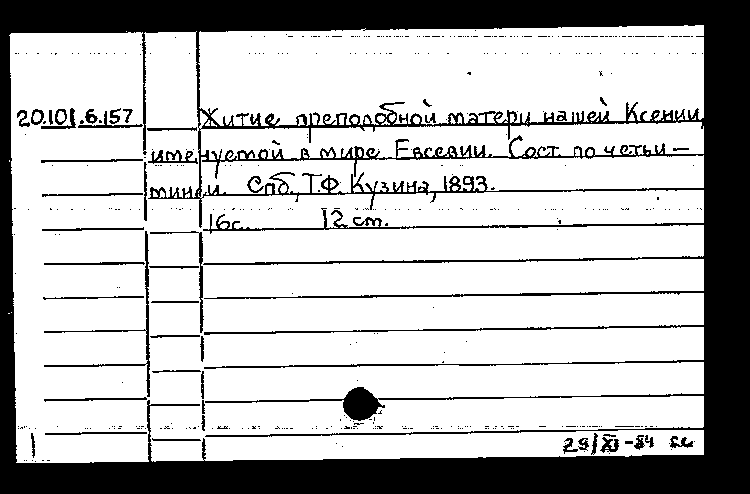 20.101.6.157 Житие преподобной матери нашей Ксении,
именуемой в мире Евсевии. Сост. по четьи-
минеи. Спб., Т.Ф. Кузина, 1893.
16с. 12 см.
29/XI-84